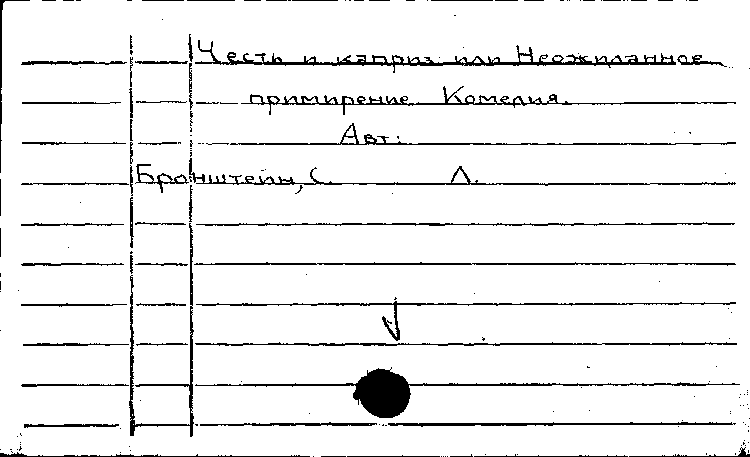 Честь и каприз или Неожиданное
примирение Комедия.
Авт:
Бронштейн, С. Л.